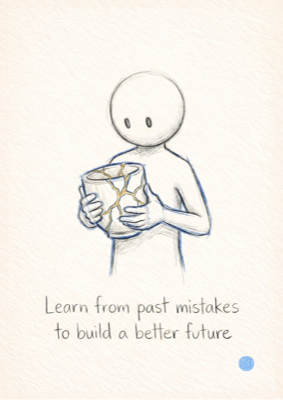 Learn from past mistakes
to build a better future